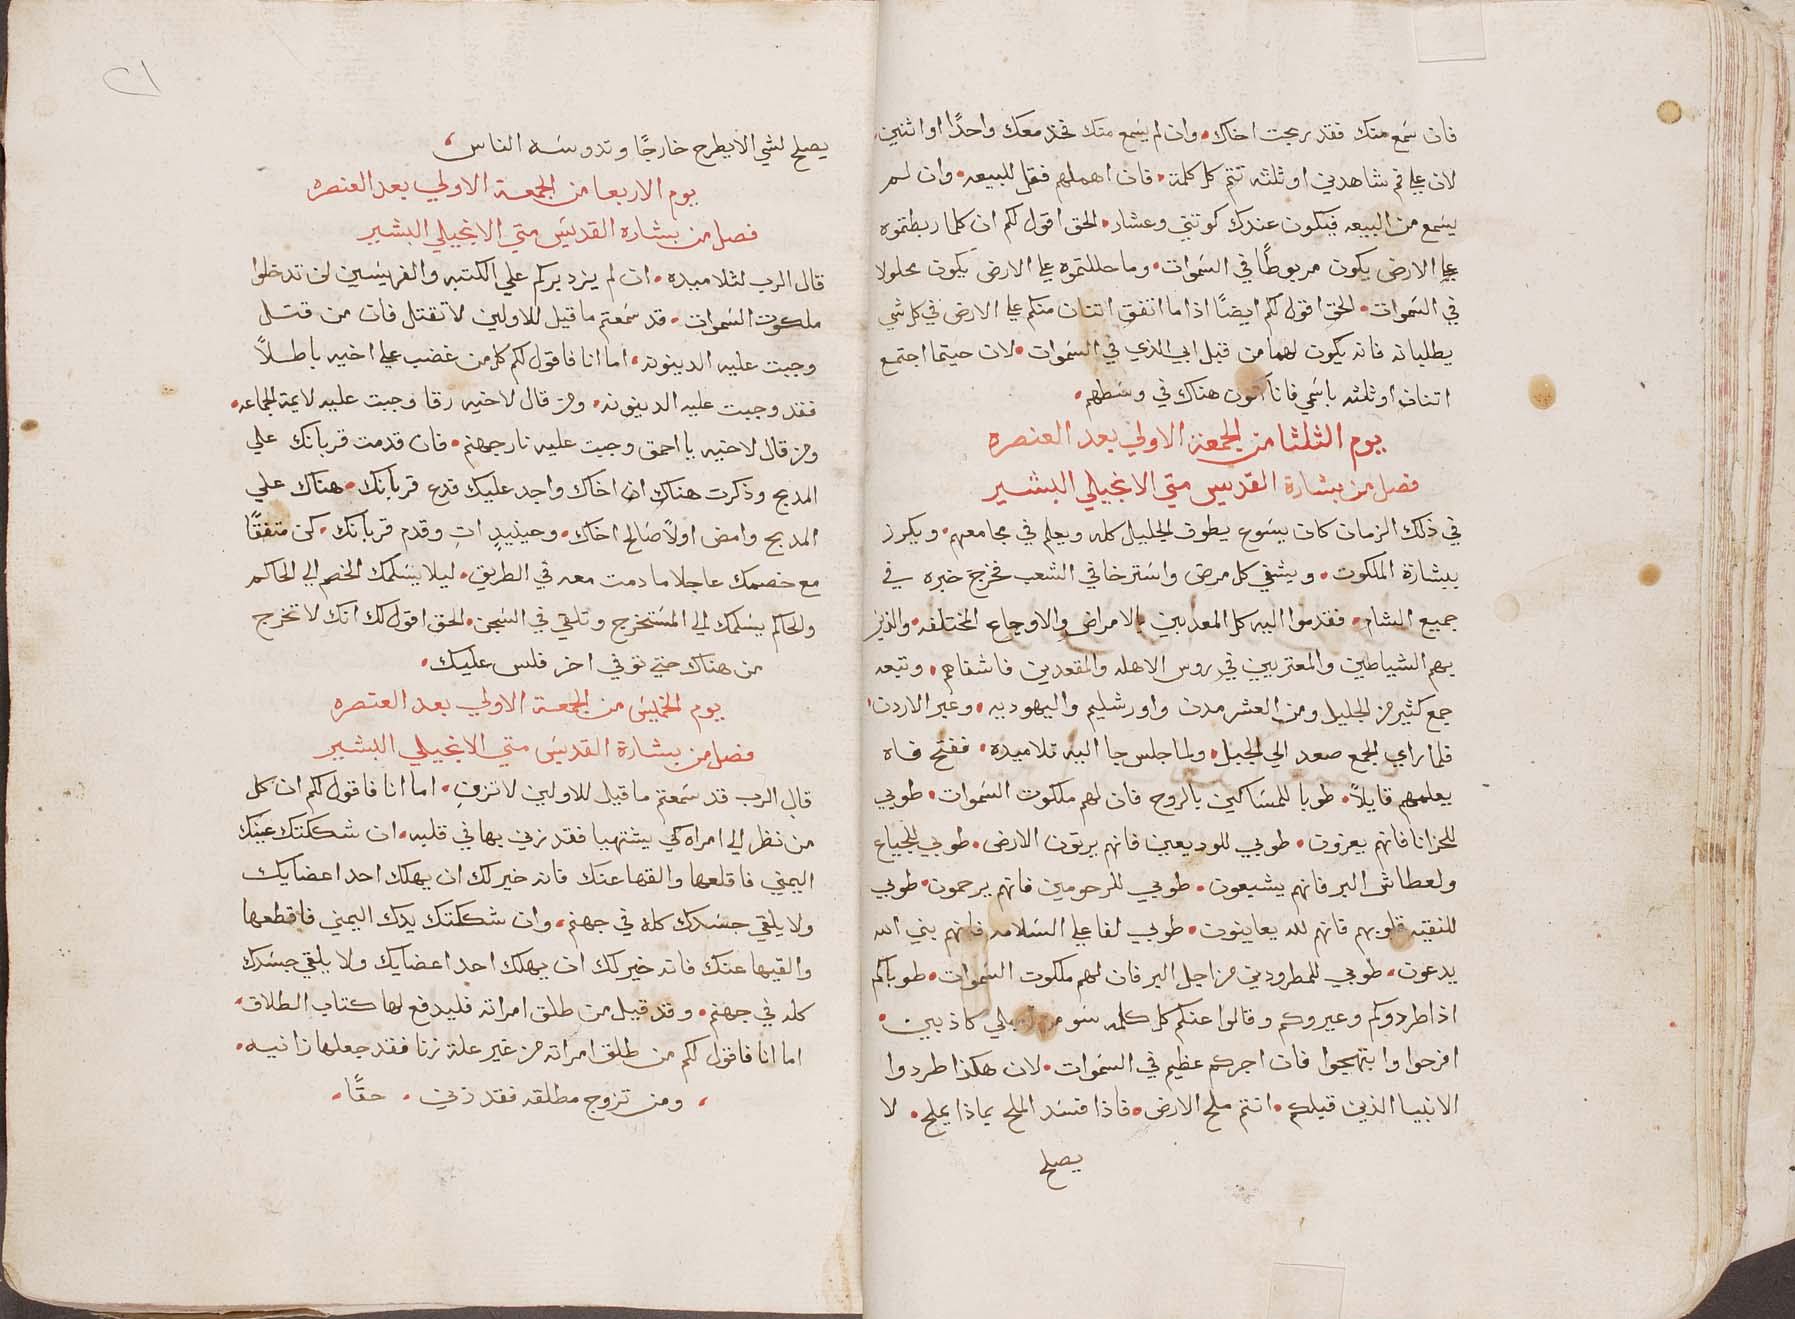 فان سمع منك فقد ربحت اخاك، وان لم يسمع منك فخذ معك واحدًا او اثنين،
لان علي فم شاهدين او ثلثه تتم كل كلمة، فان اهملهم فقل للبيعه، وان لم
يسمع من البيعه فيكون عندك كوتني وعشار، الحق اقول لكم ان كلما ربطتموه
علي الارض يكون مربوطًا في السموات، وما حللتموه علي الارض يكون محلولا
في السموات، الحق اقول لكم ايضًا اذا ما اتفق اتنان منكم علي الارض في كل شي
يطلبانه فانه يكون لهما من قبل ابي الذي في السموات، لان حيتما اجتمع
اتنان او ثلثه باسمي فانا اكون هناك في وسطهم،
يوم الثلثا من الجمعة الاولي بعد العنصره
فصل من بشارة القديس متي الانجيلي البشير
في ذلك الزمان كان يسوع يطوف الجليل كله ويعلم في مجامعهم، ويكرز
ببشارة الملكوت، ويشفي كل مرض واسترخا في الشعب فخرج خبره في
جميع الشام، فقدموا اليه كل المعدبين بالامراض والاوجاع المختلفه، والذين
بهم الشياطين والمعتربين في روس الاهله والمقعدين فاشفاهم، وتبعه
جمع كثير من الجليل ومن العشر مدن واورشليم واليهوديه، وعبر الاردن،
فلما راي الجمع صعد الي الجبل، ولما جلس جا اليه تلاميده، ففتح فاه
يعلمهم قايلاً، طوبا للمساكين بالروح فان لهم ملكوت السموات، طوبي
للحزانا فانهم يعزون، طوبي للوديعين فانهم يرتون الارض، طوبي للجياع
ولعطاش البر فانهم يشبعون، طوبي للرحومين فانهم يرحمون، طوبي
للنقيه قلوبهم فانهم لله يعاينون، طوبي لفاعلي السلامه فانهم بني الله
يدعون، طوبي للمطرودين من اجل البر فان لهم ملكوت السموات، طوباكم
اذا طردوكم وعيروكم وقالوا عنكم كل كلمه سو من اجلي كاذبين،
افرحوا وابتهجوا فان اجركم عظيم في السموات، لان هكذا طردوا
الانبيا الذين قبلكم، انتم ملح الارض، فاذا فسد الملح بماذا يملح، لا
يصلح
٢١
يصلح لشي الا يطرح خارجًا وتدوسه الناس،
يوم الاربعا من الجمعة الاولي بعد العنصره
فصل من بشاره القديس متي الانجيلي البشير
قال الرب لتلاميده، ان لم يزد بركم علي الكتبه والفريسين لن تدخلوا
ملكوت السموات، قد سمعتم ما قيل للاولين لا تقتل فان من قتل
وجبت عليه الدينونه، اما انا فاقول لكم كل من غضب علي اخيه باطلاً
فقد وجبت عليه الدينونه، ومن قال لاخيه رقا وجبت عليه لايمة الجماعه،
ومن قال لاخيه يا احمق وجبت عليه نار جهنم، فان قدمت قربانك علي
المدبح وذكرت هناك ان اخاك واجد عليك فدع قربانك، هناك علي
المدبح وامض اولاً صالح اخاك، وحينيدٍ اتِ وقدم قربانك، كن متفقًا
مع خصمك عاجلا ما دمت معه في الطريق، ليلا يسلمك الخصم الي الحاكم
والحاكم يسلمك الي المستخرج وتلقي في السجن، الحق اقول لك انك لا تخرج
من هناك حتي توفي اخر فلس عليك،
يوم الخميس من الجمعة الاولي بعد العنصره
فصل من بشارة القديس متي الانجيلي البشير
قال الرب قد سمعتم ما قيل للاولين لا تزنِ، اما انا فاقول لكم ان كل
من نظر الي امراه كي يشتهيا فقد زني بها في قلبه، ان شككتك عينك
اليمني فاقلعها والقها عنك فانه خير لك ان يهلك احد اعضايك
ولا يلقي جسدك كله في جهنم، وان شككتك يدك اليمني فاقطعها
والقيها عنك فانه خير لك ان يهلك احد اعضايك ولا يلقي جسدك
كله في جهنم، وقد قيل من طلق امراته فليدفع لها كتاب الطلاق،
اما انا فاقول لكم من طلق امراته من غير علة زنا فقد جعلها زانيه،
، ومن تزوج مطلقه فقد زني ، حقًا،